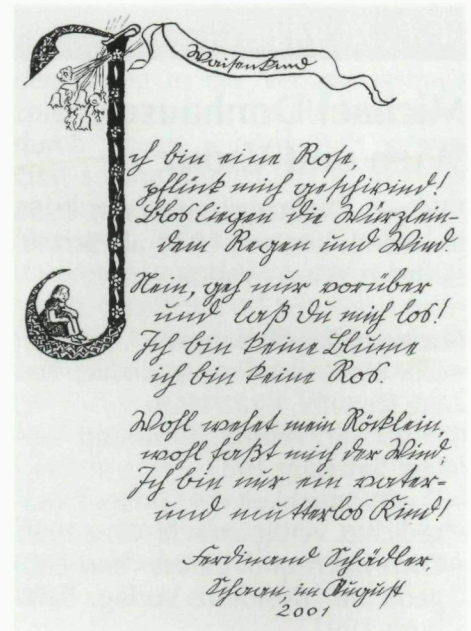 Waisenkind
Ich bin eine Rose,
pflück mich geschwind!
Blos liegen die Würzlein
dem Regen und Wind.
Nein, geh nur vorüber
und laß du mich los!
Ich bin keine Blume
ich bin keine Ros.
Wohl wehet mein Röcklein,
wohl faßt mich der Wind;
Ich bin nur ein vater-
und mutterlos Kind!
Ferdinand Schädler,
Schaan, im August
2001